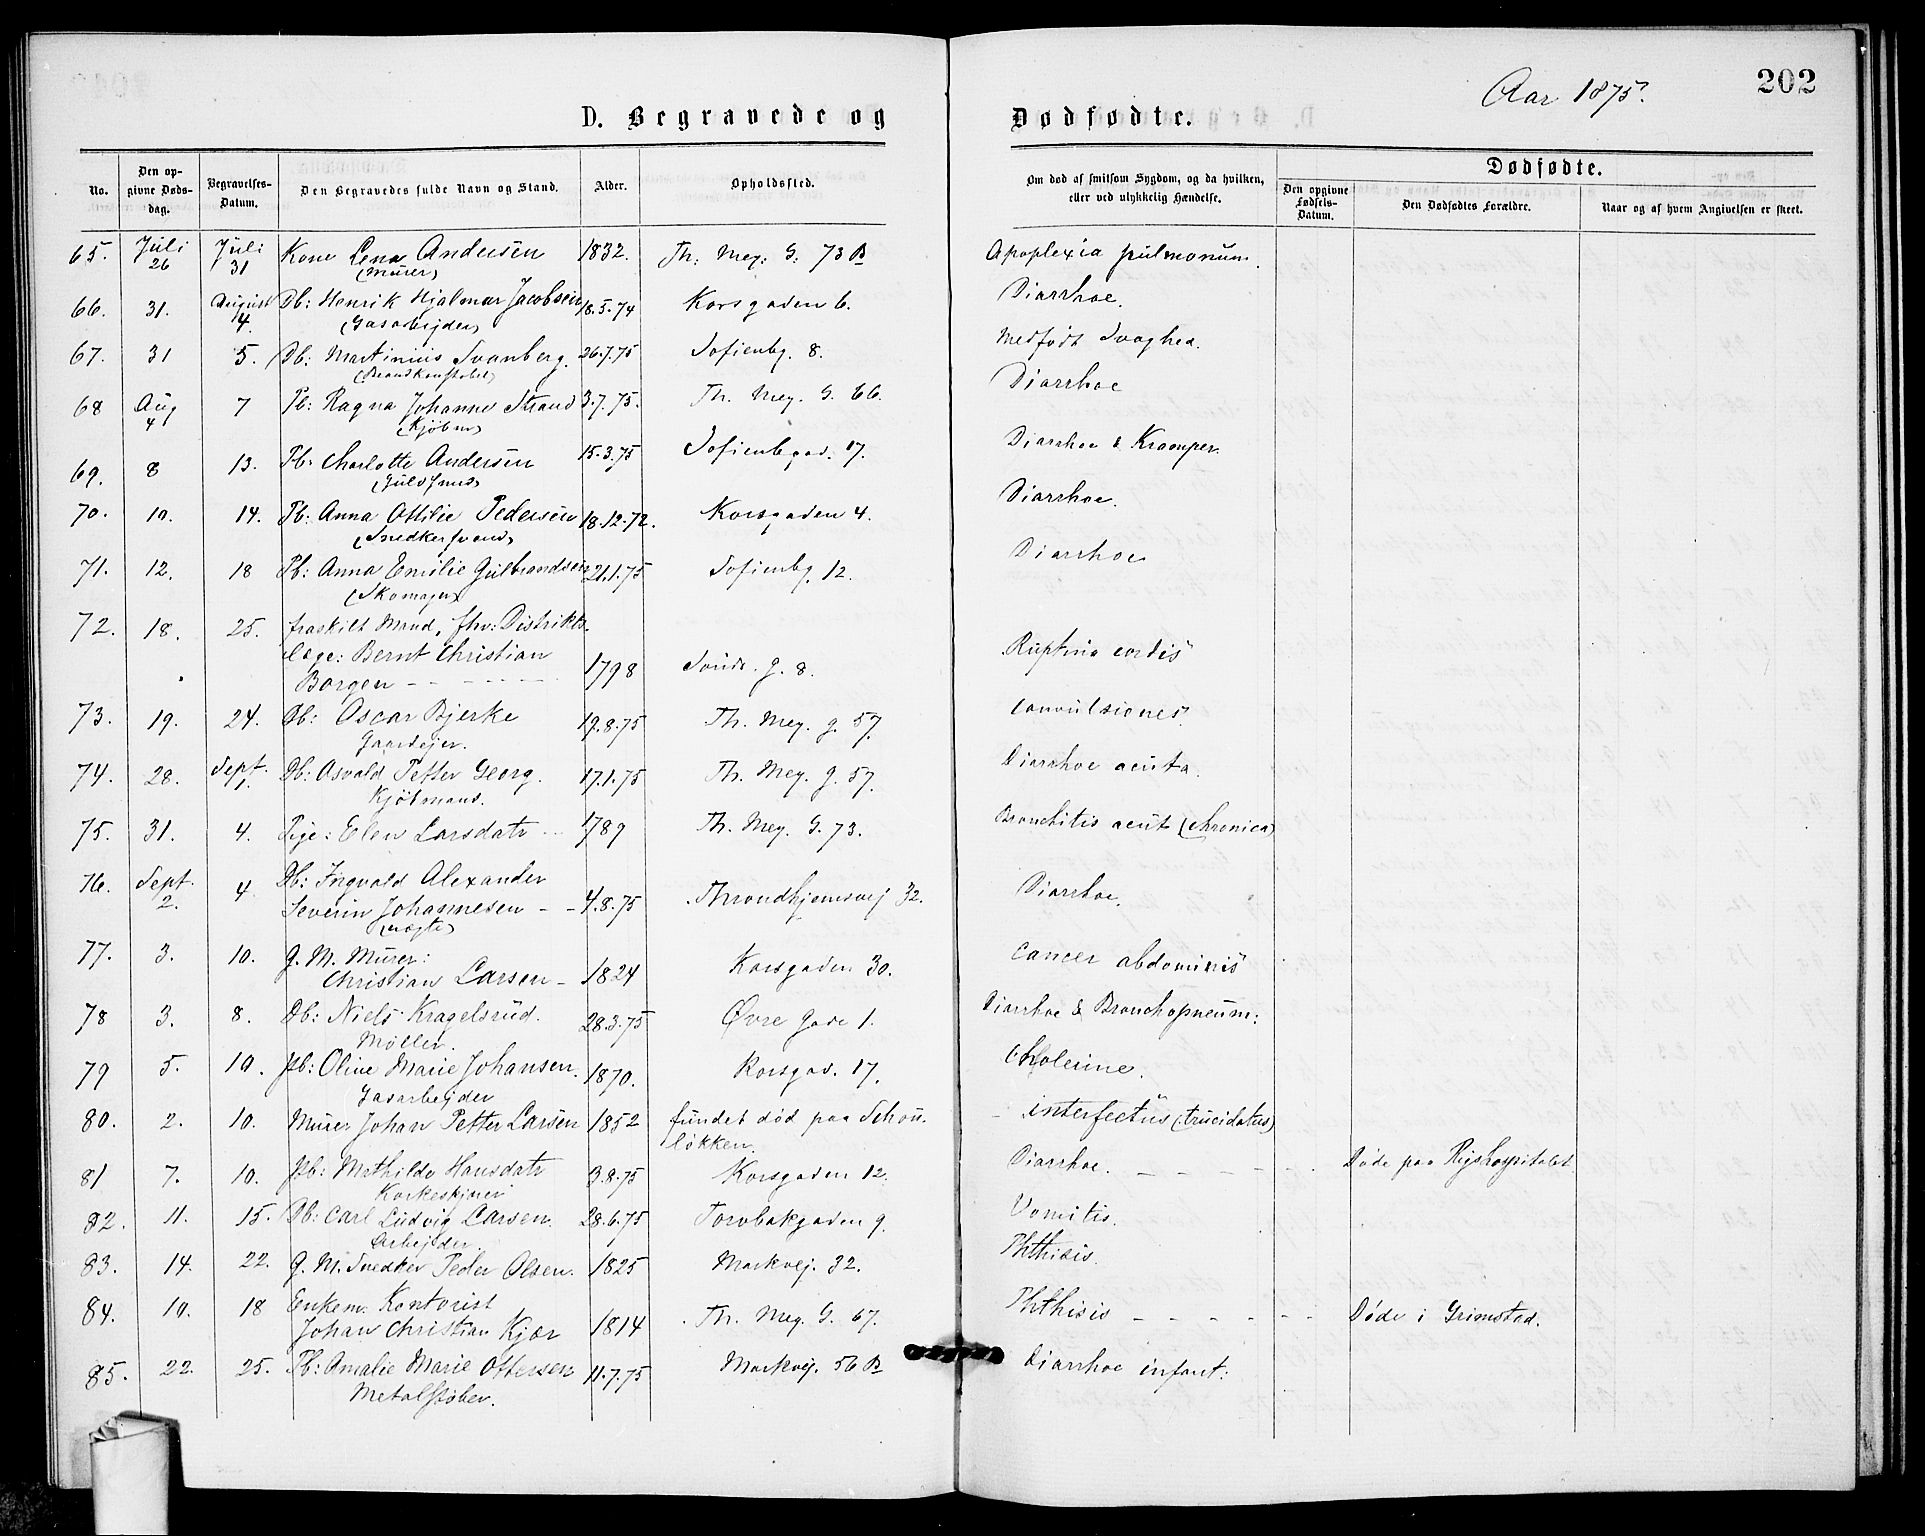 202
Aar 1875.
D. Begravede og Dødfødte.
No.
Den opgivne Dødsdag.
Begravelses-Datum.
Den Begravedes fulde Navn og Stand.
Alder.
Opholdssted.
Om død af smitsom Sygdom, og da hvilken, eller ved ulykkelig Hændelse.
Dødfødte.
Den opgivne Fødsels-Datum.
Den Dødfødtes Forældre.
Naar og af hvem Angivelsen er skeet.
65. Juli 26 Juli 31 Kone Lena Andersen 1832. Th: Mey: G: 73 B Apoplexia pulmonum.
(Murer)
66. 31. August 4. Db: Henrik Hjalmar Jacobsen 18.5.74 Korsgaden 6. Diarrhoe.
(Gasarbejder)
67. 31 5. Db: Martinius Svanberg. 26.7.75 Sofienbg. 8. Medfødt Svaghed.
(Brandkonstabel)
68 Aug 4 7 Pb: Ragna Johanne Strand 3.7.75. Th. Mey. G. 66. Diarrhoe
(Kjøbm)
69. 8 13. Pb: Charlotte Andersen 15.3.75 Sofienbgad. 17. Diarrhoe & Kramper
(Guldsmed)
70. 10. 14. Pb: Anna Ottilie Pedersen 18.12.72. Korsgaden 4. Diarrhoe.
(Snedkersvend)
71. 12. 18 Pb: Anna Emilie Gulbrandsen 21.1.75 Sofienbg. 12. Diarrhoe
(Skomager)
72. 18. 25. fraskilt Mand, fhv: Distrikts-
læge: Bernt Christian
Borgen 1798 g. 8. Ruptura cordis
73. 19. 24. Db: Oscar Bjerke 19.8.75 Th. Mey. g. 57. convulsiones.
Gaardejer.
74. 28. Sept. 1. Db: Osvald Petter Georg. 17.1.75 Th. Mey. g. 57. Diarrhoe acuta.
Kjøbmand.
75. 31. 4. Pige: Elen Larsdatr 1789 Th. Mey. G. 73. Bronchitis acut (chronica)
76. Sept. 2. 4 Db: Ingvald Alexander
Severin Johannesen 4.8.75 Throndhjemsvej 32. Diarrhoe.
77. 3. 10. g. M. Murer:
Christian Larsen 1824 Korsgaden 30. cancer abdominis
78 3. 8. Db: Niels Kragelsrud. 28.3.75 Øvre Gade 1. Diarrhoe & Bronchopneum:
Møller.
79 5. 10. Pb: Oline Marie Johansen. 1870. Korsgad. 17. Cholerine.
Gasarbejder
80. 2. 10. Murer Johan Petter Larsen 1852 fundet død paa Schou- interfectus (trucidatus)
løkken.
81 7. 10. Pb: Mathilde Hansdatr 3.8.75 Korsgaden 12. Diarrhoe. Døde paa Rigshospitalet
Korkeskjærer
82. 11. 15. Db: Carl Ludvig Larsen. 28.6.75 Torvbakgaden 9. Vomitis.
Arbejder.
83. 14. 22. g. M. Snedker Peder Olsen. 1825 Markvej. 32. Phthisis.
84. 10. 18 Enkem. Kontorist
Johan Christian Kjær 1814 Th. Mey. G. 67. Phthisis Døde i Grimstad.
85. 22. 25. Pb: Amalie Marie Ottersen 11.7.75 Markvej. 56 B Diarrhoe infant:
Metalstøber.